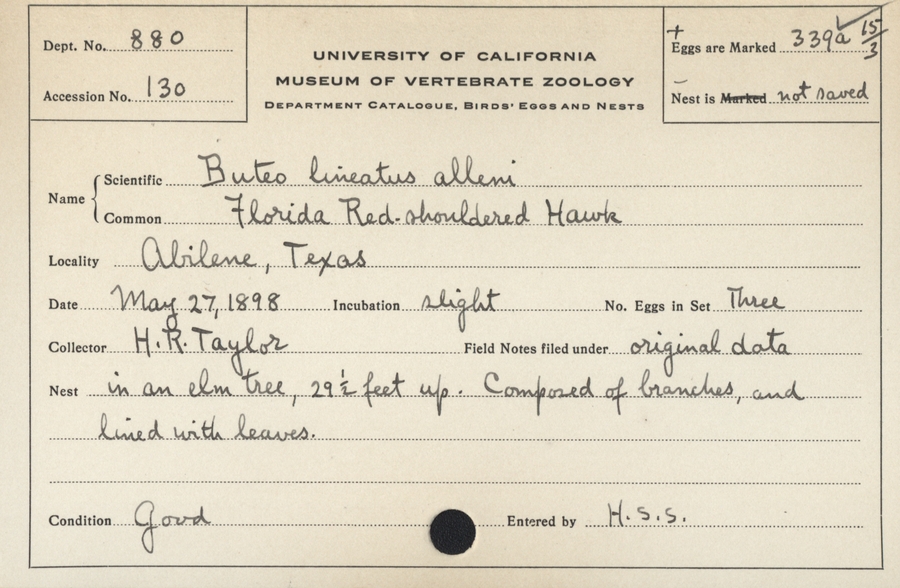 Dept. No. 880
Accession No. 130
UNIVERSITY OF CALIFORNIA
MUSEUM OF VERTEBRATE ZOOLOGY
DEPARTMENT CATALOGUE, BIRDS' EGGS AND NESTS
+
Eggs are Marked 339a 15/3
Nest is Marked not saved
Name
Scientific Buteo lineatus alleni
Common Florida Red-shouldered Hawk
Locality Abilene, Texas
Date May 27, 1898 Incubation slight No. Eggs in Set Three
Collector H.R. Taylor Field Notes filed under original data
Nest in an elm tree, 29½ feet up. Composed of branches, and
lined with leaves.
Condition Good Entered by H.S.S.